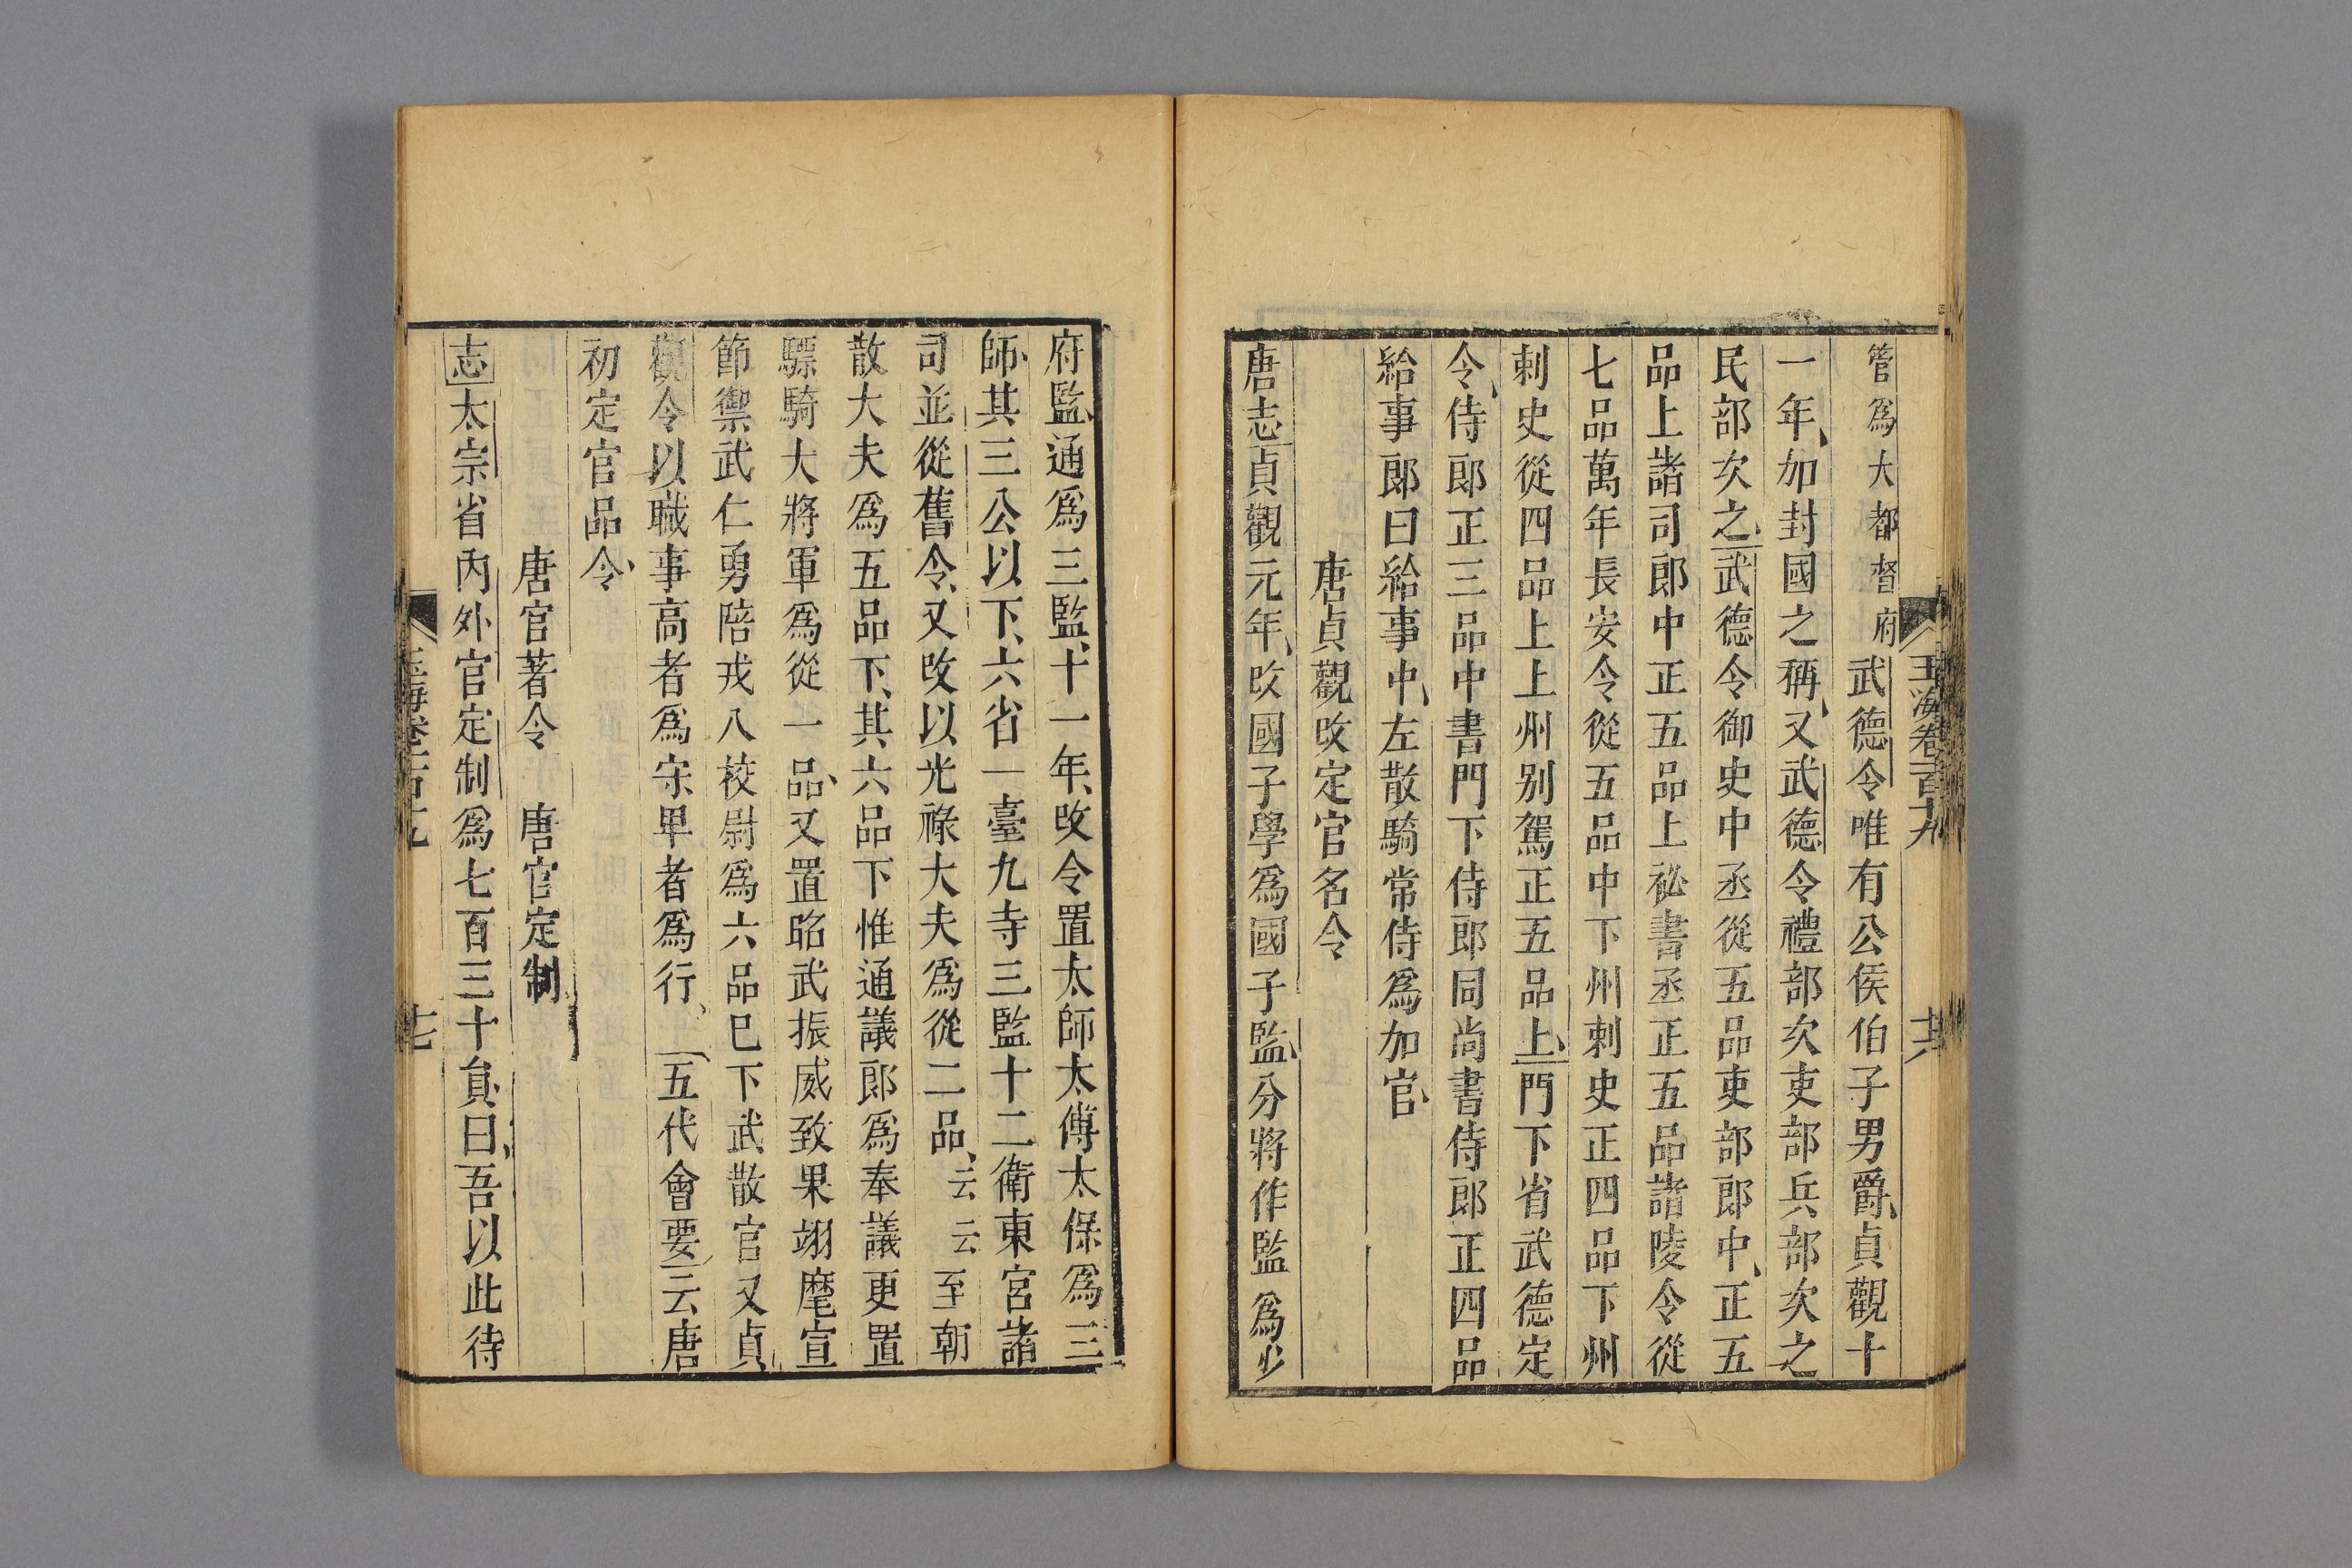 玉海卷一百十九
管爲大都督府武德令唯有公侯伯子男爵貞觀十
一年加封國之稱又武德令禮部次吏部兵部次之
民部次之武德令御史中丞從五品吏部郎中正五
品上諸司郎中正五品上祕書丞正五品諸陵令從
七品萬年長安令從五品中下州刺史正四品下州
刺史從四品上上州别駕正五品上門下省武德定
令侍郎正三品中書門下侍郎同尚書侍郎正四品
給事郎曰給事中左散騎常侍爲加官
唐貞觀攺定官名令
唐志貞觀元年攺國子學爲國子監分將作監爲少
府監通爲三監十一年攺令置太師太傅太保爲三
師其三公以下六省一臺九寺三監十二衛東宮諸
司並從舊令又攺以光祿大夫爲從二品云云至朝
散大夫爲五品下其六品下惟通議郎爲奉議更置
驃騎大將軍爲從一品又置昭武振威致果翊麾宣
節禦武仁勇陪戎八校尉爲六品巳下武散官又貞
觀令以職事高者爲守卑者爲行 五代會要云唐
初定官品令
唐官著令 唐官定制
志太宗省內外官定制爲七百三十貟曰吾以此待